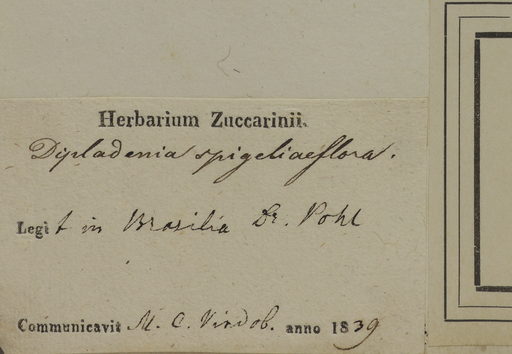 Herbarium Zuccarinii.
Dipladenia spigeliaeflora.
Legit in Brasilia Dr. Pohl
Communicavit M. C. Vindob. anno 1839